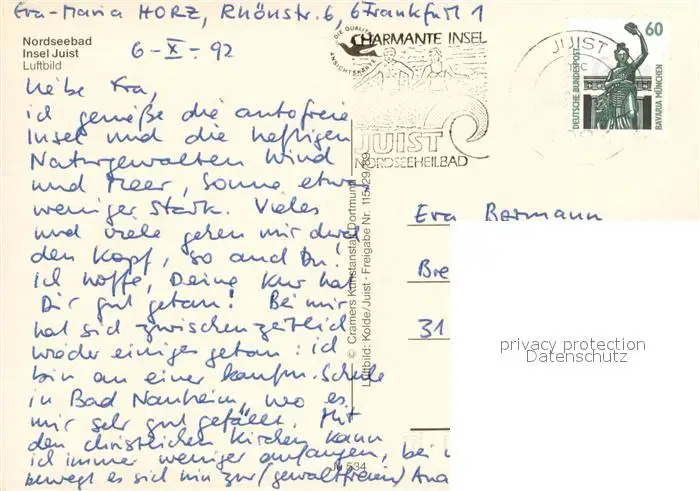 Eva-Maria HORZ, Rhönstr. 6, 6 Frankfurt 1
Nordseebad
Insel Juist
Luftbild
6-X-92
Liebe Eva,
ich genieße die autofreie
Insel und die heftigen
Naturgewalten Wind
und Meer, Sonne etwas
weniger stark. Vieles
und viele gehen mir durch
den Kopf, so auch Du!
Ich hoffe, Deine Kur hat
Dir gut getan! Bei mir
hat sich zwischenzeitlich
wieder einiges getan: ich
bin an einer kaufm. Schule
in Bad Nauheim, wo es
mir sehr gut gefällt. Mit
den christlichen Kirchen kann
ich immer weniger anfangen, bei
bewegt es sich hin zur (gewaltfreien) Ana
DIE QUALITÄTS
ANSICHTSKARTE
CHARMANTE INSEL
JUIST
NORDSEEHEILBAD
JUIST
60
DEUTSCHE BUNDESPOST
BAVARIA MÜNCHEN
© Cramers Kunstanstalt Dortmund
Luftbild: Kolde/Juist - Freigabe Nr.
Ju 534
Eva Bermann
Bre
31
privacy protection
Datenschutz